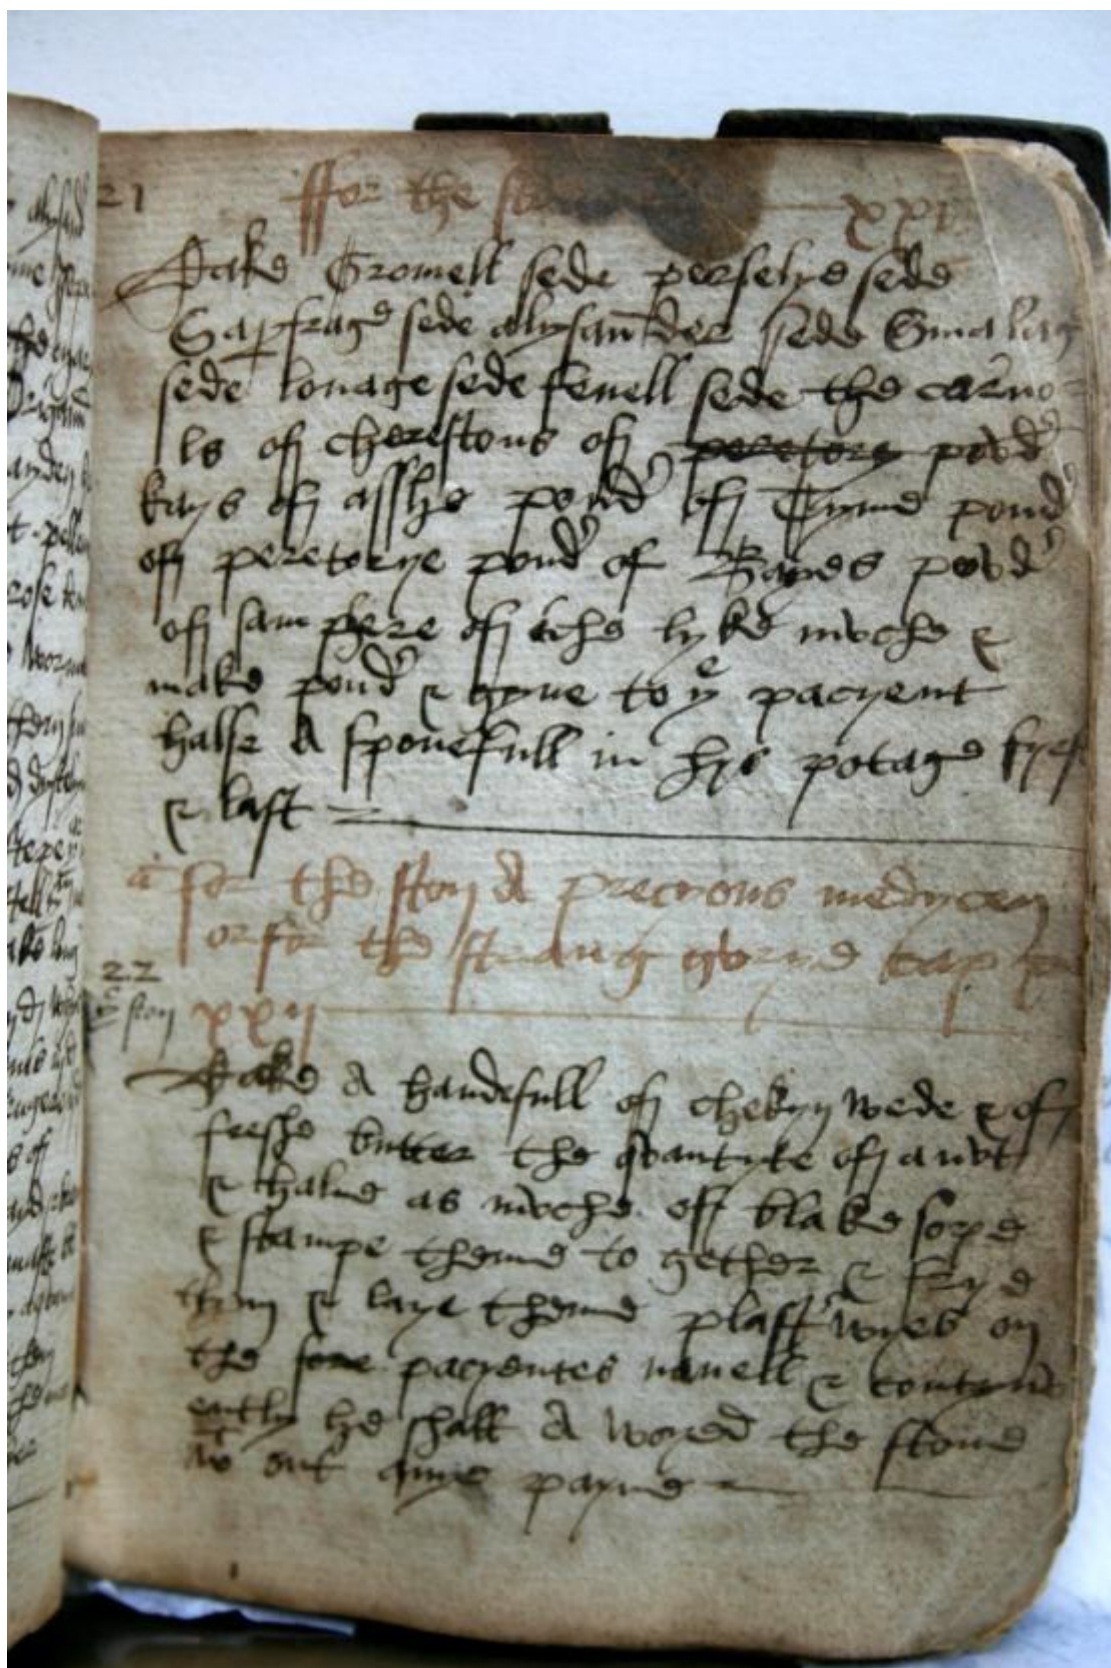 21 ffor the xxi
Take Gromell sede perselye sede
Saxfrage sede alysander sede Smalag
sede louage sede fenell sede the carno
ls off cherestons off peretory povd
kays off asshe poud off Tyme poud
off peretorye poud of Bayes povd
off sampere off eche lyke moche &
make poud & gyue to ye pacyent
halfe A sponefull in hys potage fyrst
& last
a for the ston A precyous medycen
or for the strang
22
ye ston xxij
Take A handefull off chekyn wede & off
freshe butter the quantyte off a nvt
& halue as moche off blake sope
& stampe theme to gether & frye
them & laye theme plast wyes on
the sore pacyentes nauell & contynu
ently he shall A woyed the stone
wt out anye payne